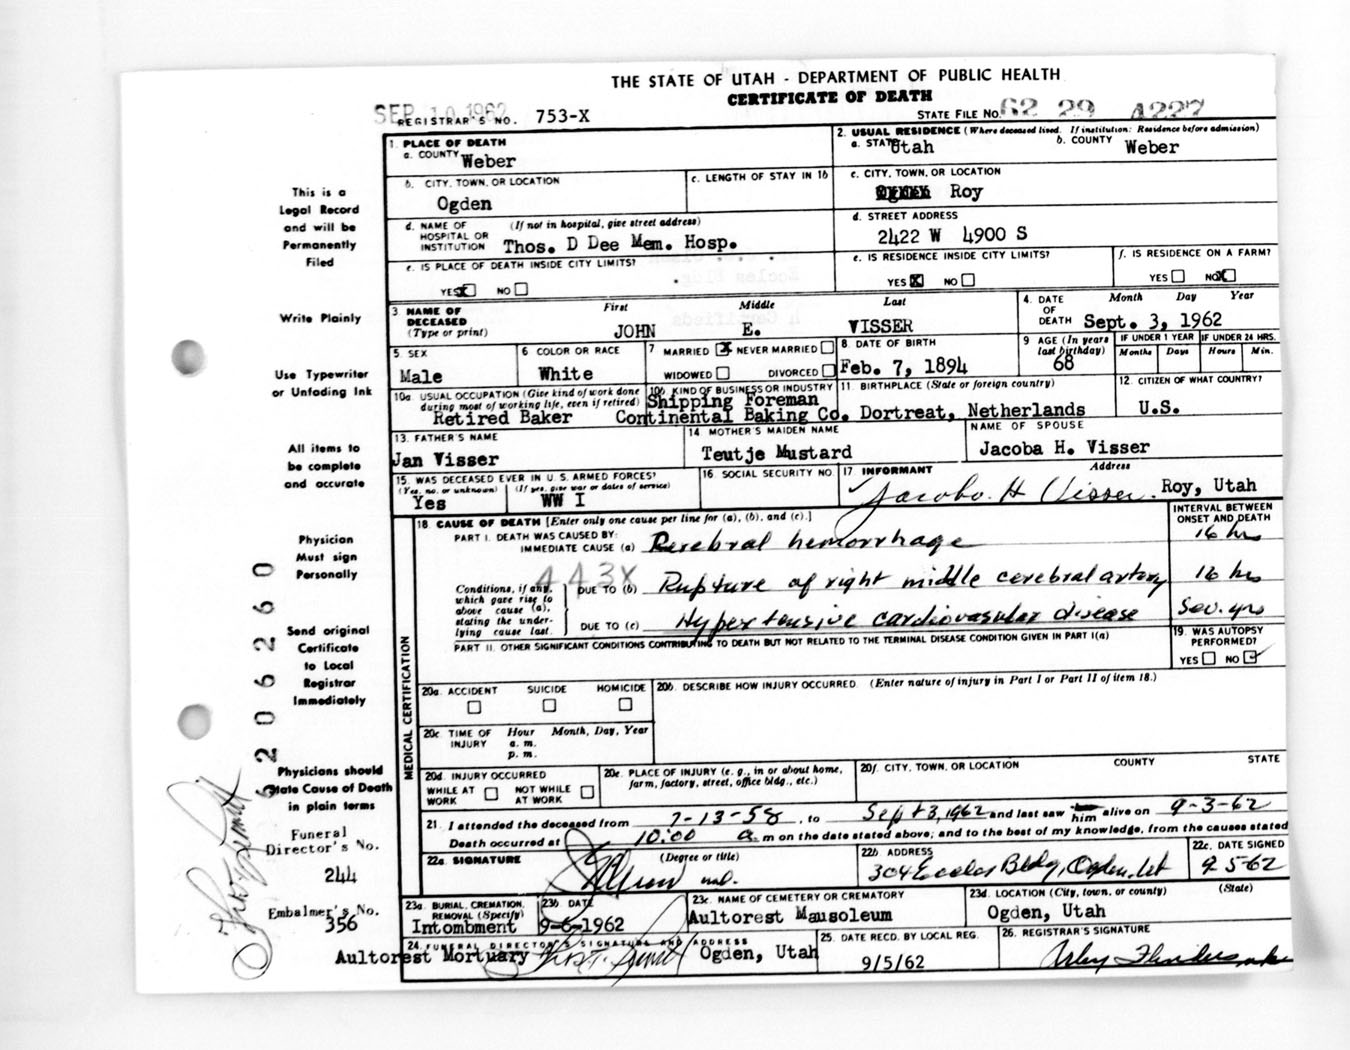 THE STATE OF UTAH - DEPARTMENT OF PUBLIC HEALTH
CERTIFICATE OF DEATH
SEP 10 1962
REGISTRAR'S NO. 753-X
STATE FILE No. 62 29 4227
1. PLACE OF DEATH
a. COUNTY Weber
2. USUAL RESIDENCE (Where deceased lived. If institution: Residence before admission)
a. STATE Utah b. COUNTY Weber
b. CITY, TOWN, OR LOCATION
Ogden
c. LENGTH OF STAY IN 1b
c. CITY, TOWN, OR LOCATION
Roy
d. NAME OF HOSPITAL OR INSTITUTION (If not in hospital, give street address)
Thos. D Dee Mem. Hosp.
d. STREET ADDRESS
2422 W 4900 S
e. IS PLACE OF DEATH INSIDE CITY LIMITS?
YES X NO
e. IS RESIDENCE INSIDE CITY LIMITS?
YES X NO
f. IS RESIDENCE ON A FARM?
YES NO X
3. NAME OF DECEASED (Type or print)
First Middle Last
JOHN E. VISSER
4. DATE OF DEATH Month Day Year
Sept. 3, 1962
5. SEX
Male
6 COLOR OR RACE
White
7 MARRIED X NEVER MARRIED
WIDOWED DIVORCED
8. DATE OF BIRTH
Feb. 7, 1894
9 AGE (In years last birthday)
68
IF UNDER 1 YEAR
Months Days
IF UNDER 24 HRS.
Hours Min.
10a. USUAL OCCUPATION (Give kind of work done during most of working life, even if retired)
Retired Baker
10b KIND OF BUSINESS OR INDUSTRY
Shipping Foreman
Continental Baking Co.
11 BIRTHPLACE (State or foreign country)
Dortreat, Netherlands
12. CITIZEN OF WHAT COUNTRY?
U.S.
13. FATHER'S NAME
Jan Visser
14 MOTHER'S MAIDEN NAME
Teutje Mustard
NAME OF SPOUSE
Jacoba H. Visser
15. WAS DECEASED EVER IN U.S. ARMED FORCES?
(Yes, no. or unknown) (If yes, give war or dates of service)
Yes WW I
16 SOCIAL SECURITY NO.
17 INFORMANT Address
Jacoba H Visser. Roy, Utah
18. CAUSE OF DEATH [Enter only one cause per line for (a), (b), and (c).]
INTERVAL BETWEEN ONSET AND DEATH
PART I. DEATH WAS CAUSED BY:
IMMEDIATE CAUSE (a) Cerebral hemorrhage 16 hrs
443X
Conditions, if any, which gave rise to above cause (a), stating the underlying cause last.
DUE TO (b) Rupture of right middle cerebral artery 16 hrs
DUE TO (c) Hypertensive cardiovascular disease Sev. yrs
PART II. OTHER SIGNIFICANT CONDITIONS CONTRIBUTING TO DEATH BUT NOT RELATED TO THE TERMINAL DISEASE CONDITION GIVEN IN PART I(a)
19. WAS AUTOPSY PERFORMED?
YES NO ✓
MEDICAL CERTIFICATION
20a. ACCIDENT SUICIDE HOMICIDE
20b. DESCRIBE HOW INJURY OCCURRED. (Enter nature of injury in Part I or Part II of item 18.)
20c. TIME OF INJURY Hour Month, Day, Year
a. m.
p. m.
20d. INJURY OCCURRED
WHILE AT WORK NOT WHILE AT WORK
20e. PLACE OF INJURY (e. g., in or about home, farm, factory, street, office bldg., etc.)
20f. CITY, TOWN, OR LOCATION COUNTY STATE
21. I attended the deceased from 7-13-58, to Sept 3, 1962 and last saw him alive on 9-3-62
Death occurred at 10:00 a. m on the date stated above; and to the best of my knowledge, from the causes stated
22a. SIGNATURE (Degree or title)
22b ADDRESS
304 Eccles Bldg, Ogden, Ut
22c. DATE SIGNED
9-5-62
23a. BURIAL, CREMATION, REMOVAL (Specify)
Intombment
23b DATE
9-6-1962
23c. NAME OF CEMETERY OR CREMATORY
Aultorest Mausoleum
23d. LOCATION (City, town, or county) (State)
Ogden, Utah
24. FUNERAL DIRECTOR'S SIGNATURE AND ADDRESS
Aultorest Mortuary Ogden, Utah
25. DATE RECD. BY LOCAL REG.
9/5/62
26. REGISTRAR'S SIGNATURE
This is a
Legal Record
and will be
Permanently
Filed
Write Plainly
Use Typewriter
or Unfading Ink
All items to
be complete
and accurate
Physician
Must sign
Personally
Send original
Certificate
to Local
Registrar
Immediately
Physicians should
State Cause of Death
in plain terms
Funeral
Director's No.
244
Embalmer's No.
356